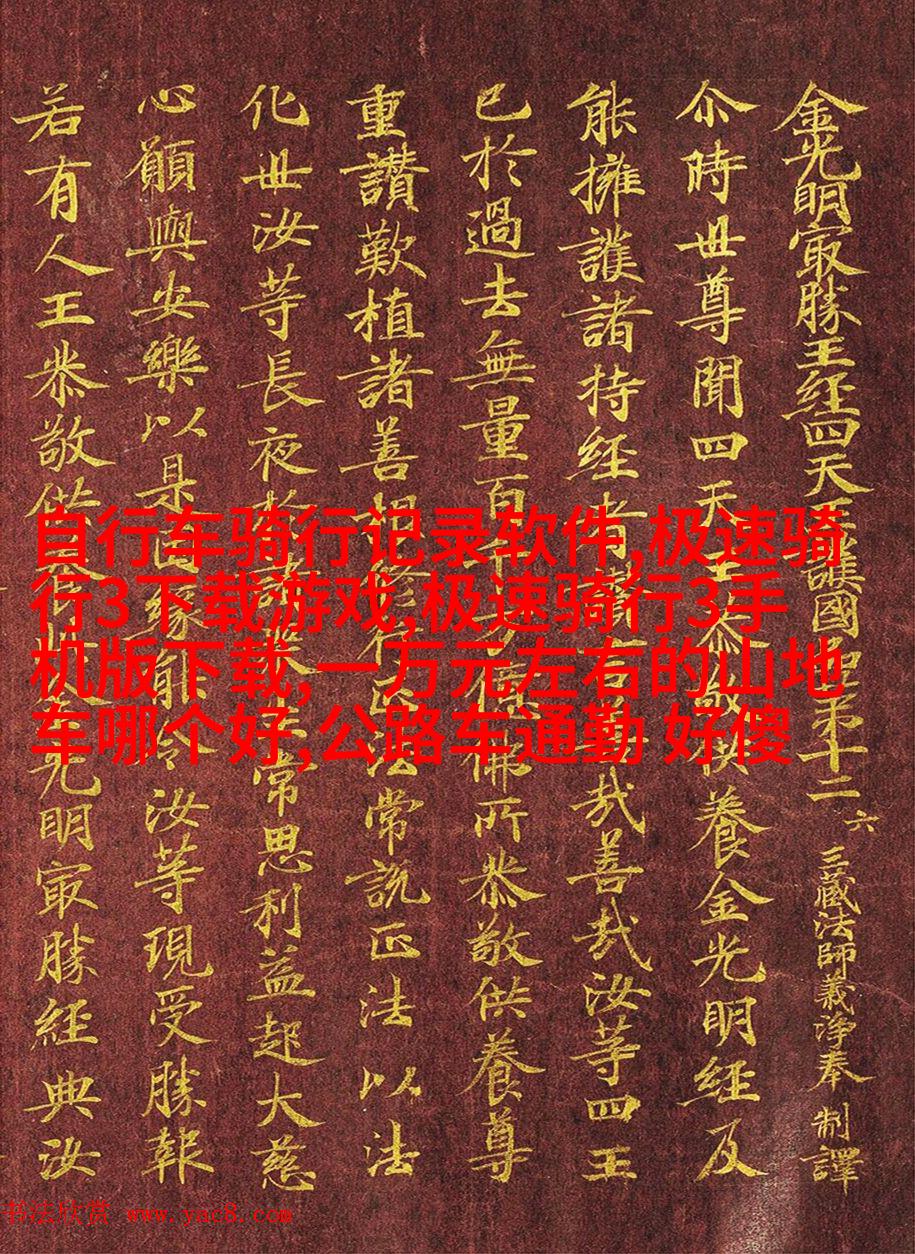 金光明㝡勝王経四天王護國品苐十二 六 三藏法師義淨奉 制譯
尒時世尊聞四天王恭敬供養金光明經及
能擁護諸持経者哉善哉汝等四王
已於過去無量百千億佛所恭敬供養尊
重讃歎植諸善根修行正法常説正法以法
化世汝等長夜常思利益起大慈
心願與安樂以是因緣能令汝等現受勝報
若有人王恭敬供光明㝡勝經典汝
自行车骑行记录软件,极速骑
行3下载游戏,极速骑行3手
机版下载,一万元左右的山地
车哪个好,公路车通勤 好傻
书法欣赏 www.yac8.com